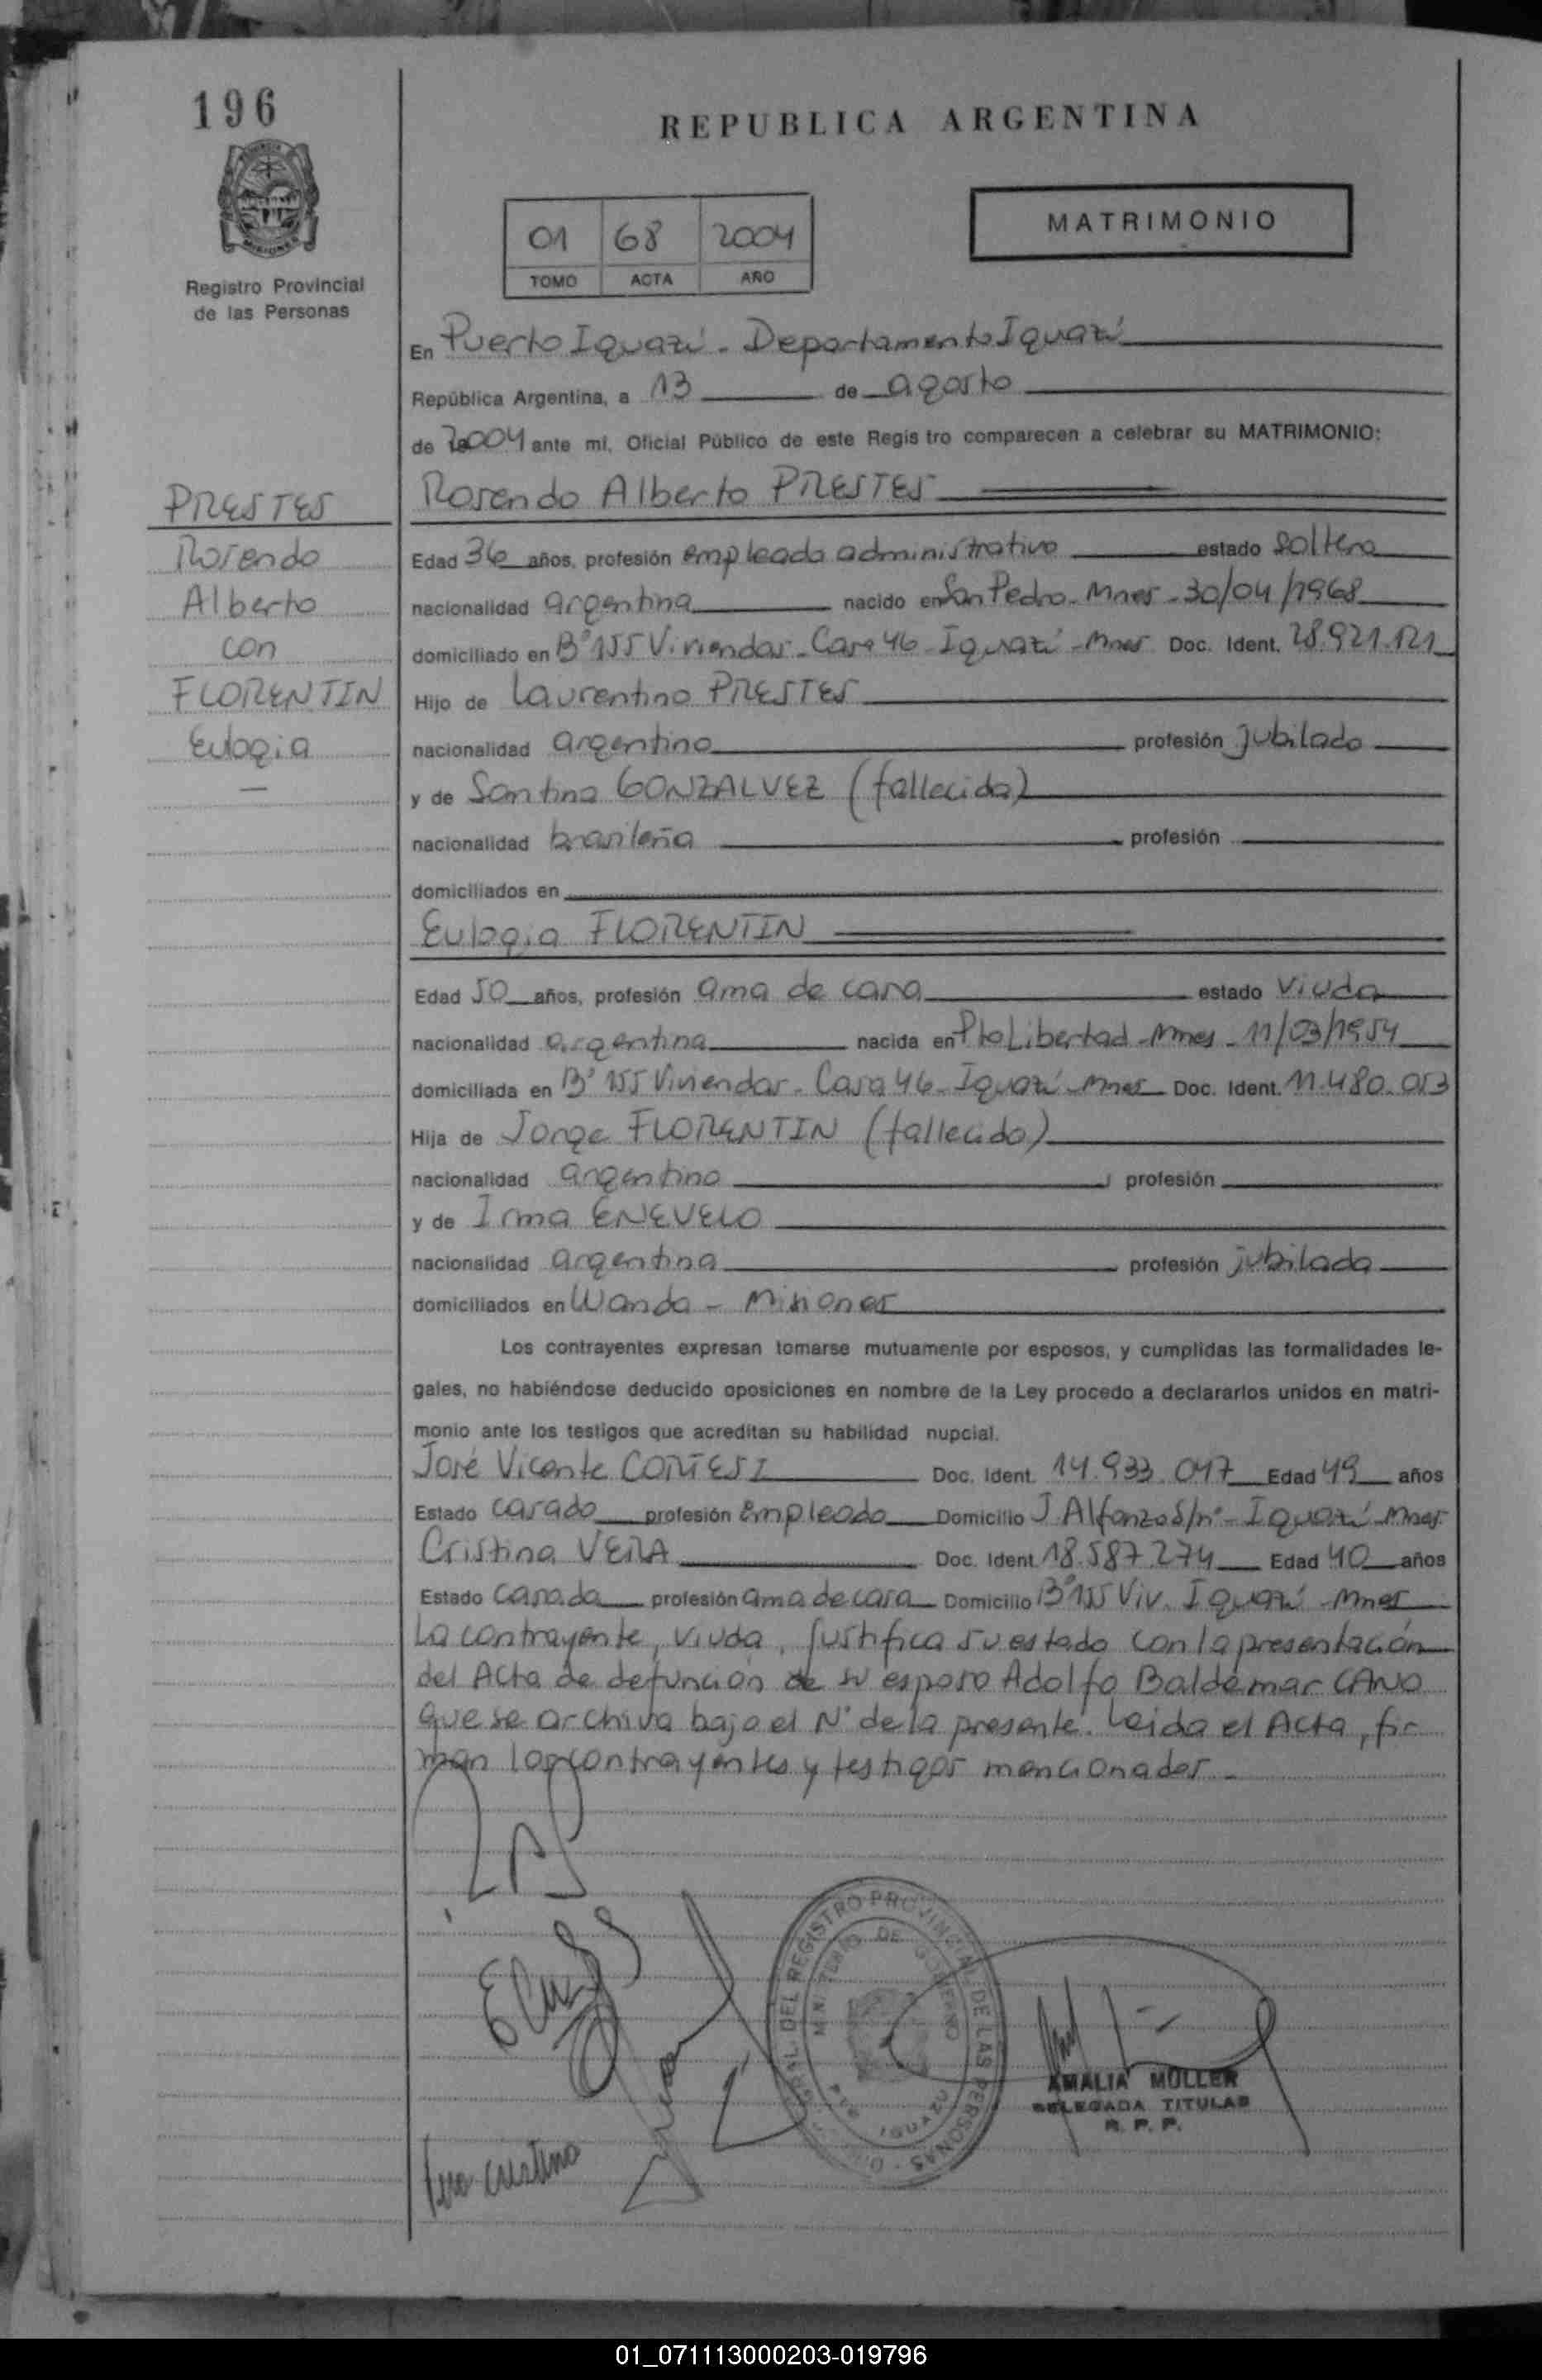 196
REPUBLICA ARGENTINA
MISIONES
Registro Provincial
de las Personas
01 68 2004
TOMO ACTA AÑO
MATRIMONIO
En Puerto Iguazú - Departamento Iguazú
República Argentina, a 13 de agosto
de 2004 ante mí, Oficial Público de este Regis tro comparecen a celebrar su MATRIMONIO:
PRESTES
Rosendo
Alberto
con
FLORENTIN
Eulogia
—
Rosendo Alberto PRESTES
Edad 36 años, profesión empleado administrativo estado soltero
nacionalidad argentina nacido en San Pedro - Mnes - 30/04/1968
domiciliado en B° 155 Viviendas - Casa 46 - Iguazú - Mnes Doc. Ident. 28.921.121
Hijo de Laurentino PRESTES
nacionalidad argentino profesión jubilado
y de Santina GONZALVEZ (fallecida)
nacionalidad brasileña profesión
domiciliados en
Eulogia FLORENTIN
Edad 50 años, profesión ama de casa estado viuda
nacionalidad argentina nacida en Pto Libertad - Mnes - 11/03/1954
domiciliada en B° 155 Viviendas - Casa 46 - Iguazú - Mnes Doc. Ident. 11.480.053
Hija de Jorge FLORENTIN (fallecido)
nacionalidad argentino profesión
y de Irma ENEVELO
nacionalidad argentina profesión jubilada
domiciliados en Wanda - Misiones
Los contrayentes expresan tomarse mutuamente por esposos, y cumplidas las formalidades le-
gales, no habiéndose deducido oposiciones en nombre de la Ley procedo a declararlos unidos en matri-
monio ante los testigos que acreditan su habilidad nupcial.
José Vicente CORTESI Doc. Ident. 14.933.047 Edad 49 años
Estado casado profesión empleado Domicilio J. Alfonzo S/n° - Iguazú - Mnes
Cristina VERA Doc. Ident 18.587.274 Edad 40 años
Estado casada profesión ama de casa Domicilio B° 155 Viv. Iguazú - Mnes
La contrayente, viuda, justifica su estado con la presentación
del Acta de defunción de su esposo Adolfo Baldemar CANO
que se archiva bajo el N° de la presente. Leida el Acta, fir
man los contrayentes y testigos mencionados -
DEL REGISTRO PROVINCIAL DE LAS PERSONAS
MINISTERIO DE GOBIERNO
AMALIA MULLER
DELEGADA TITULAR
R. P. P.
Vera Cristina
01_071113000203-019796